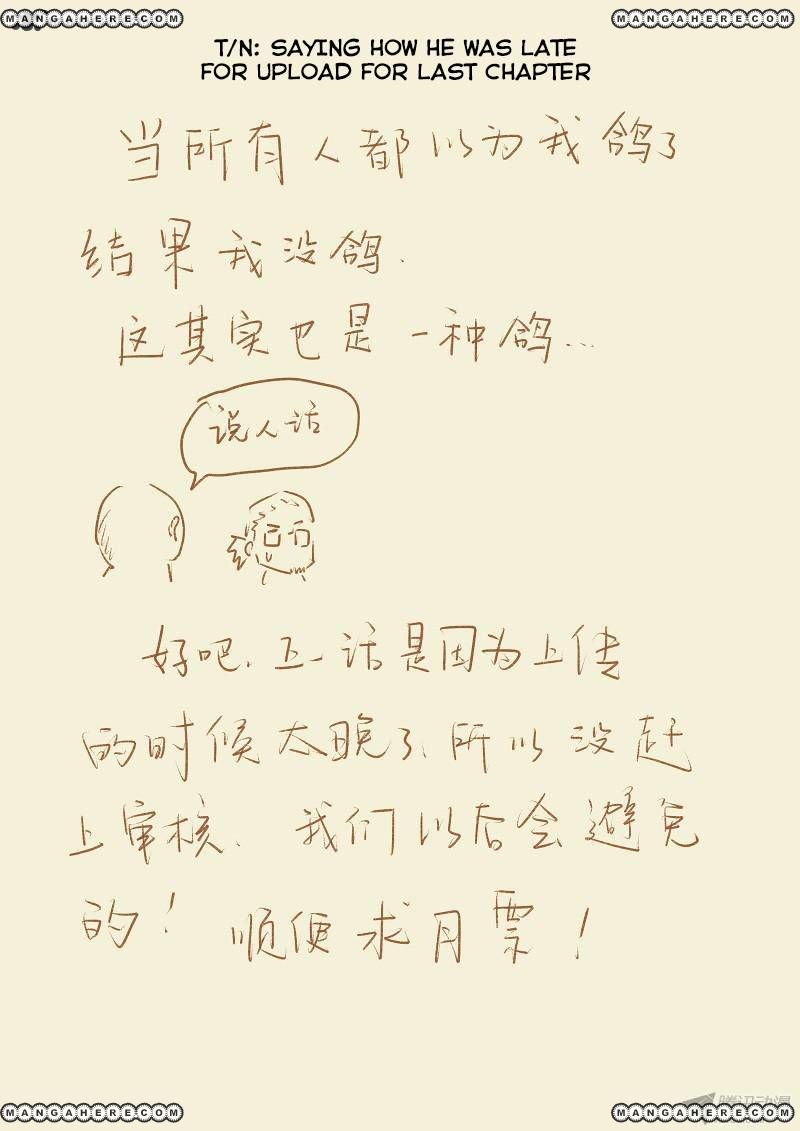 MANGAHERE.COM MANGAHERE.COM
T/N: SAYING HOW HE WAS LATE
FOR UPLOAD FOR LAST CHAPTER
当所有人都以为我鸽了
结果我没鸽.
这其实也是一种鸽...
说人话
好吧.上一话是因为上传
的时候太晚了、所以没赶
上审核、我们以后会避免
的！顺便求月票！
腾讯动漫
MANGAHERE.COM MANGAHERE.COM